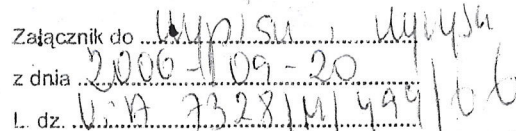 Załącznik do wypisu i wyrysu
z dnia 2006-09-20
L. dz. 7328/M/499/06